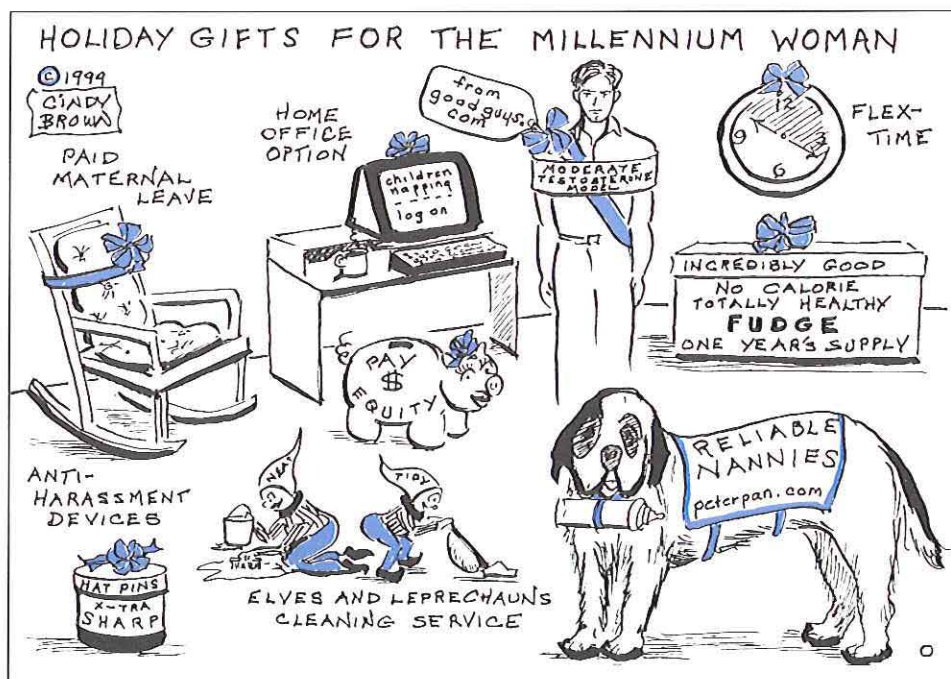 HOLIDAY GIFTS FOR THE MILLENNIUM WOMAN
© 1999
CINDY
BROWN
PAID
MATERNAL
LEAVE
HOME
OFFICE
OPTION
children
napping
log on
from
goodguys.
com
MODERATE
TESTOSTERONE
MODEL
12
3
6
9
FLEX-
TIME
INCREDIBLY GOOD
NO CALORIE
TOTALLY HEALTHY
FUDGE
ONE YEAR'S SUPPLY
PAY
$
EQUITY
ANTI-
HARASSMENT
DEVICES
HAT PINS
X-TRA
SHARP
TIDY
ELVES AND LEPRECHAUNS
CLEANING SERVICE
RELIABLE
NANNIES
peterpan.com